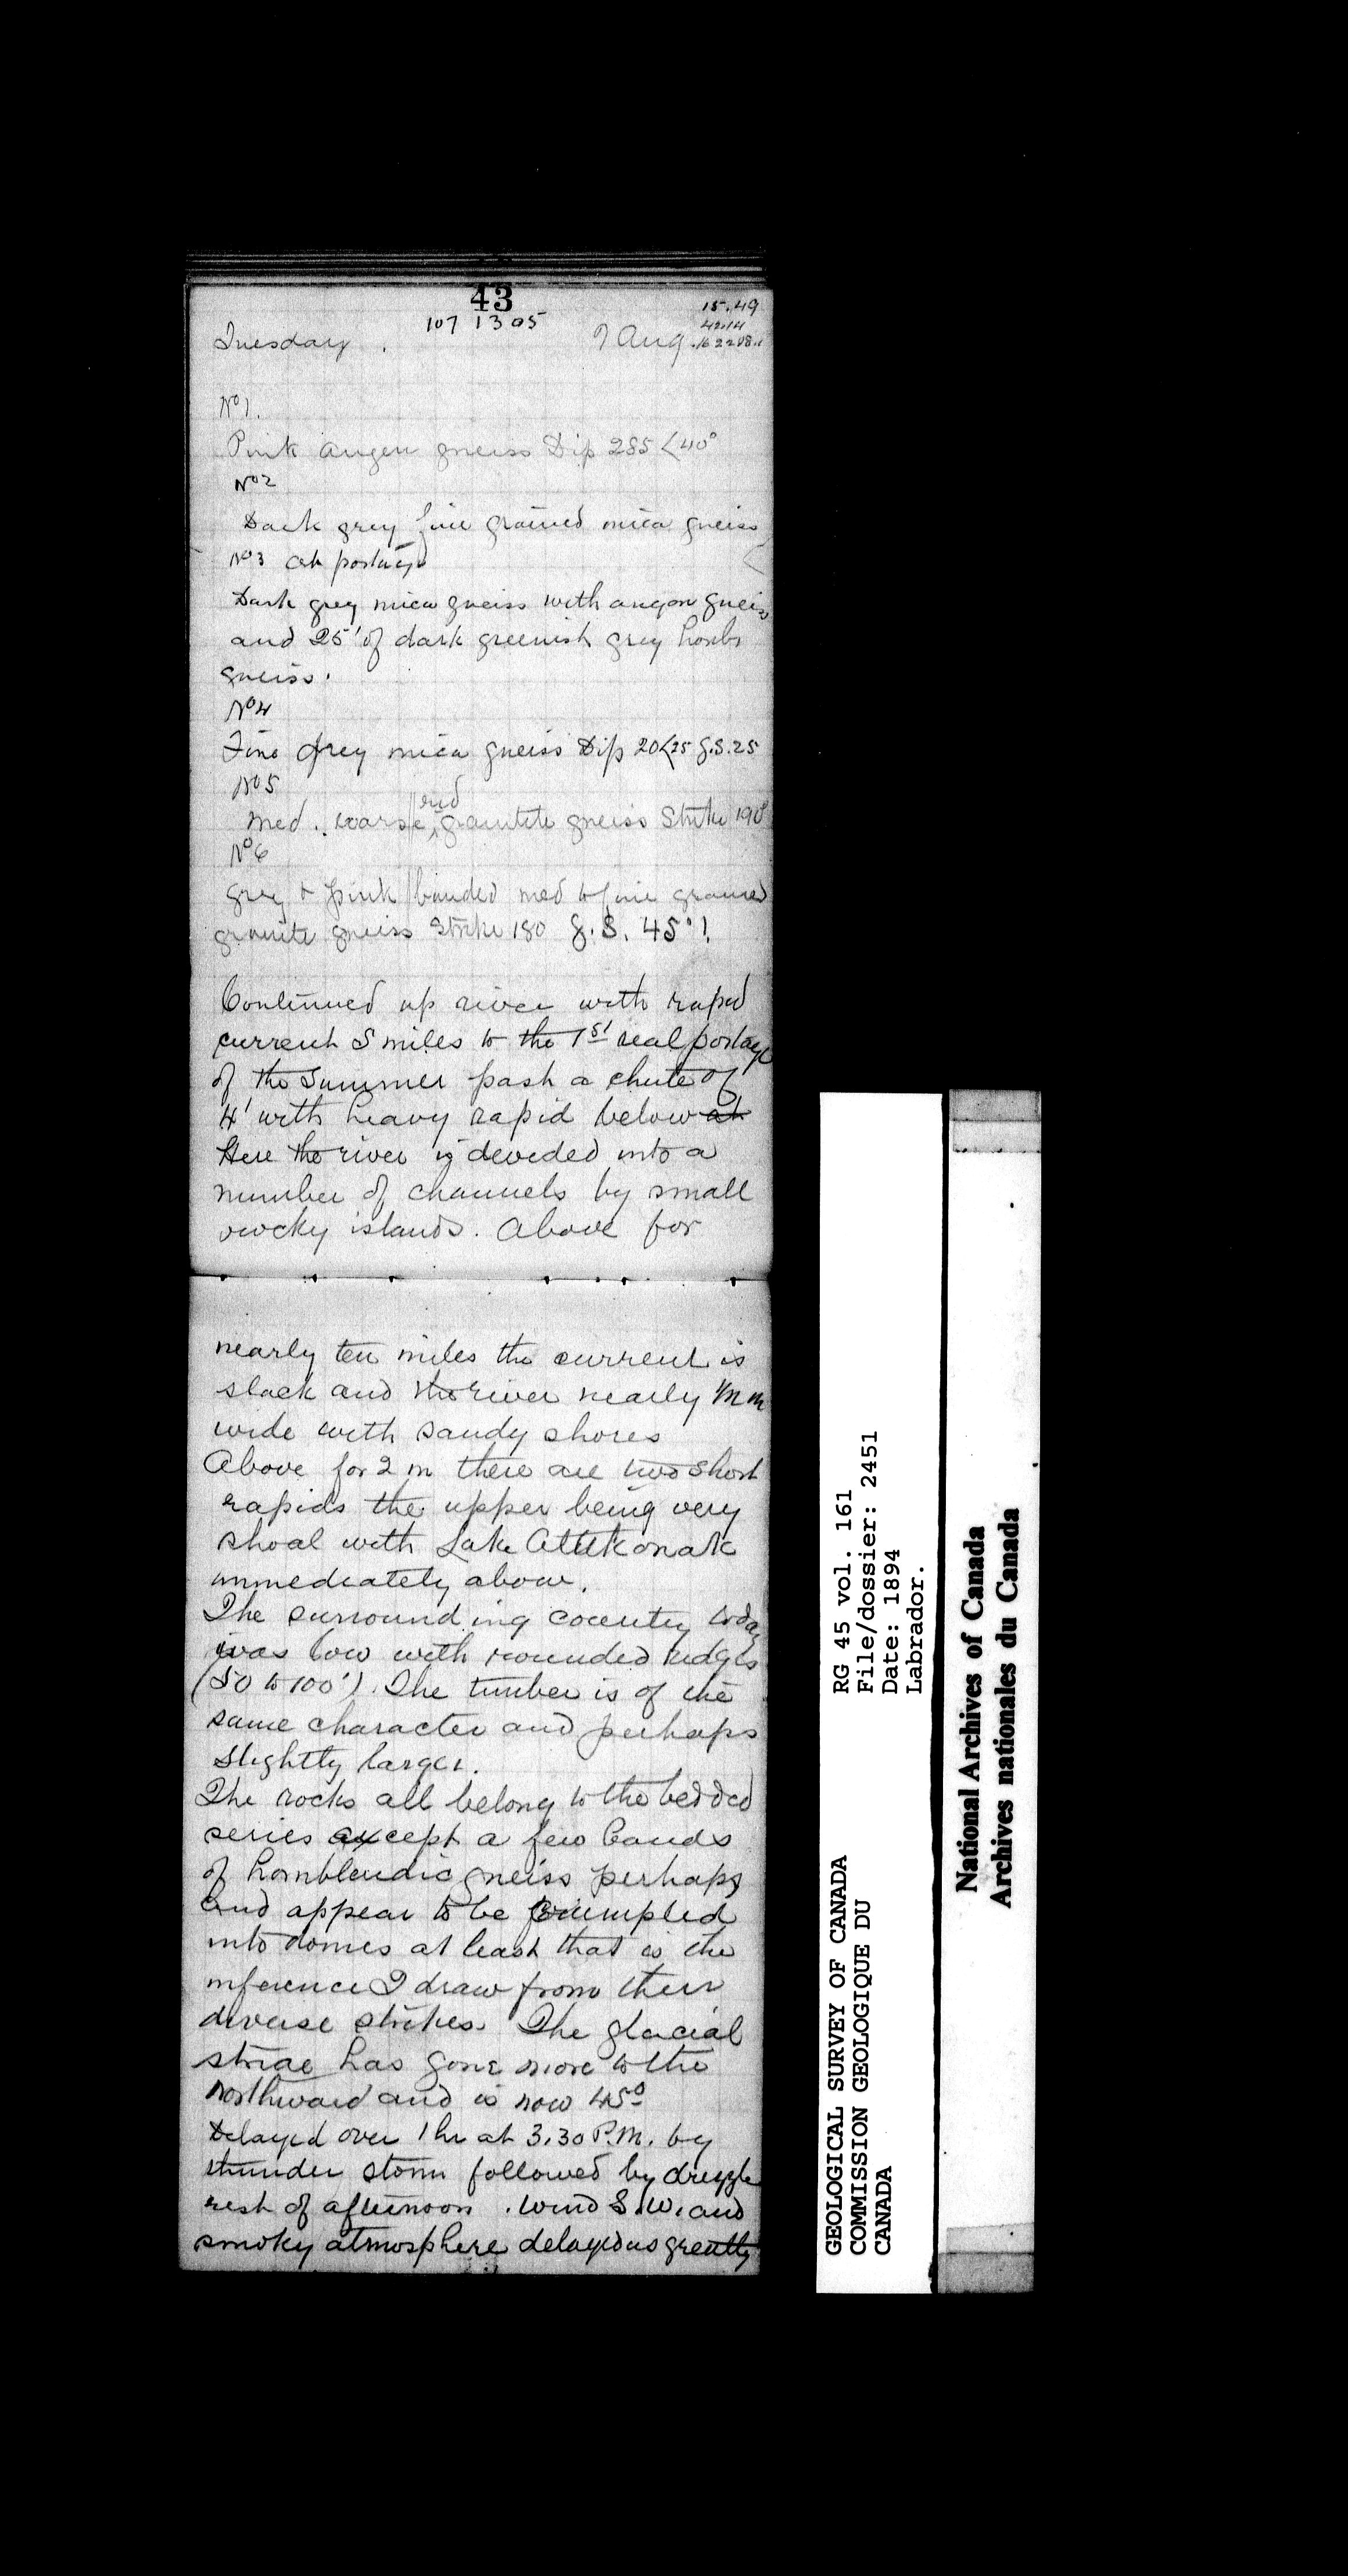 43
15.49
107 1305
42.14
Tuesday . 7 Aug.
No 1.
Pink augen gneiss Dip 285 <40°
No 2
Dark grey fine grained mica gneiss
No 3 at portage
Dark grey mica gneiss with augen gneiss
and 25' of dark greenish grey hornb
gneiss.
No 4
Fine grey mica gneiss Dip 20<25 g.S. 25
No 5
red
Med. coarse granitite gneiss Strike 190°
No 6
grey & pink banded med to fine grained
granite gneiss Strike 180 g.S. 45°!
Continued up river with rapid
current 5 miles to the 1st real portage
of the summer past a chute of
4' with heavy rapid below at
Here the river is devided into a
number of channels by small
rocky islands. Above for
nearly ten miles the current is
slack and the river nearly
wide with sandy shores
Above for 2 m there are two short
rapids the upper being very
shoal with Lake Attikonak
immediately above.
The surrounding country today
was low with rounded ridges
(50 to 100'). The timber is of the
same character and perhaps
slightly larger.
The rocks all belong to the bedded
series except a few bands
of hornblendic gneiss perhaps
and appear to be crumpled
into domes at least that is the
inference I draw from their
diverse strikes. The glacial
striae has gone more to the
northward and is now 45°
Delayed over 1 hr at 3.30 P.M. by
thunder storm followed by drizzle
rest of afternoon. Wind S.W. and
smoky atmosphere delayed us greatly
RG 45 vol. 161
File/dossier: 2451
Date: 1894
Labrador.
GEOLOGICAL SURVEY OF CANADA
COMMISSION GEOLOGIQUE DU
CANADA
National Archives of Canada
Archives nationales du Canada